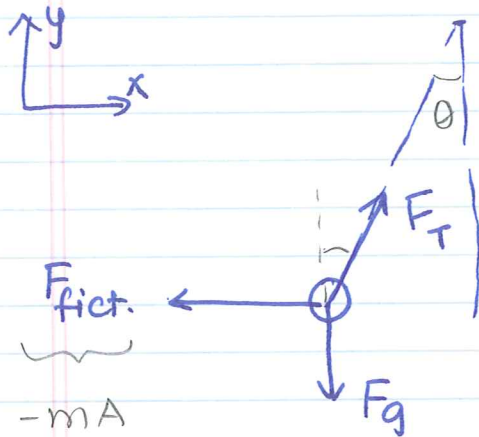 y
x
θ
F_T
F_fict.
-mA
F_g